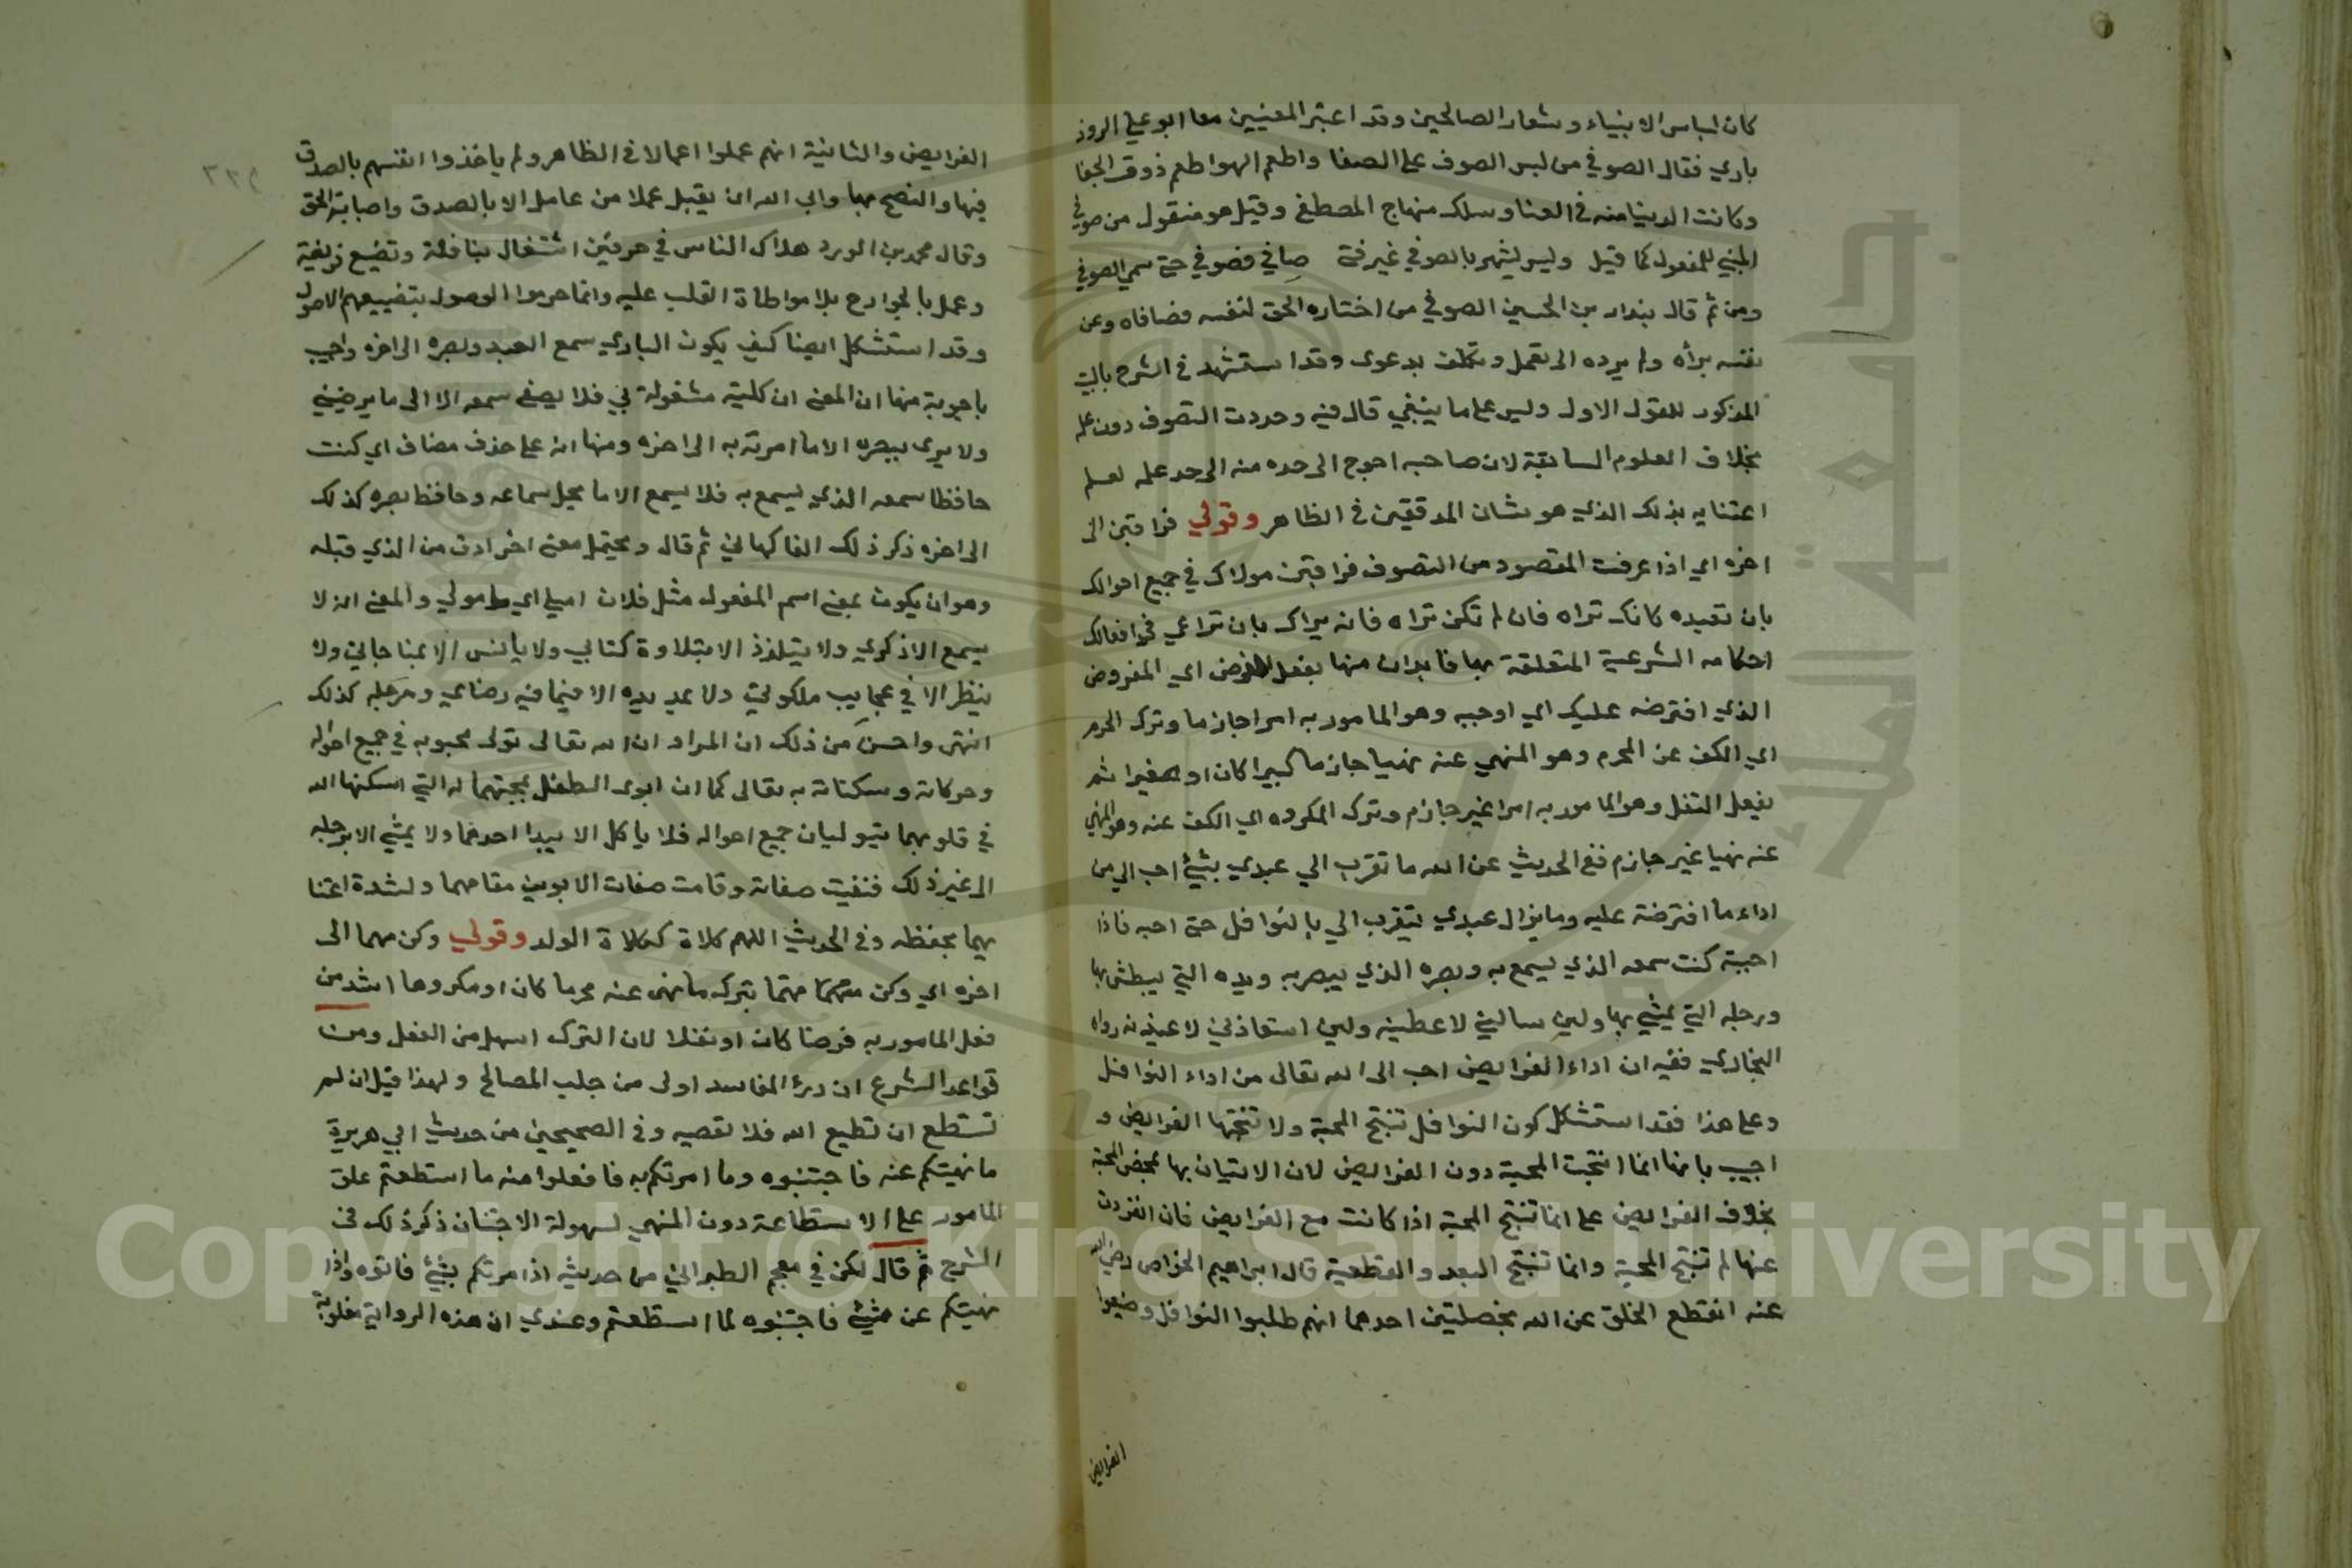 كان لباس الانبياء وشعار الصالحين وقد اعتبر المعنيين معا ابو علي الروذ
باري فقال الصوفي من لبس الصوف على الصفا واطعم الهوا طعم ذوق الجفا
وكانت الدنيا منه في العنا وسلك منهاج المصطفى وقيل هو منقول من صوفي
المبني للمفعول كما قيل وليس يشهر بالصوفي غير فتى صافي فصوفي حتى سمي الصوفي
ومن ثم قال بندار بن الحسين الصوفي من اختاره الحق لنفسه فصافاه وعن
نفسه برأه ولم يرده الى تعمل وتكلف بدعوى وقد استشهد في الشرح بالبيت
المذكور للقول الاول وليس على ما ينبغي قال فيه وحددت التصوف دون علمه
بخلاف العلوم السابقة لان صاحبه احوج الى حده منه الى حد علمه لعدم
اعتنايه بذلك الذي هو شان المدققين في الظاهر وقولي فراقبن الى
اخره اي اذا عرفت المقصود من التصوف فراقبن مولاك في جميع احوالك
بان تعبده كانك تراه فان لم تكن تراه فانه يراك بان تراعي في افعالك
احكامه الشرعية المتعلقة بها فابدان منها بفعل الفرض اي المفروض
الذي افترضه عليك اي اوجبه وهو المامور به امرا جازما وترك المحرم
اي الكف عن المحرم وهو المنهي عنه نهيا جازما كبيرا كان او صغيرا ثم
بفعل النفل وهو المامور به امرا غير جازم وترك المكروه اي الكف عنه وهو المنهي
عنه نهيا غير جازم ففي الحديث عن الله ما تقرب الي عبدي بشيئ احب الي من
اداء ما افترضته عليه وما يزال عبدي يتقرب الي بالنوافل حتى احبه فاذا
احببته كنت سمعه الذي يسمع به وبصره الذي يبصر به ويده التي يبطش بها
ورجله التي يمشي بها ولين سالني لاعطينه ولين استعاذني لاعيذنه رواه
البخاري ففيه ان اداء الفرايض احب الى الله تعالى من اداء النوافل
وعلى هذا فقد استشكل كون النوافل تنتج المحبة ولا تنتجها الفرايض و
اجيب بانها انما انتجت المحبة دون الفرايض لان الاتيان بها لمحض المحبة
بخلاف الفرايض على انما تنتج المحبة اذا كانت مع الفرايض فان انفردت
عنها لم تنتج المحبة وانما تنتج البعد والقطعية قال ابراهيم الخواص رضي الله
عنه انقطع الخلق عن الله بخصلتين احدهما انهم طلبوا النوافل وضيعوا
الفرايض
الفرايض والثانية انهم عملوا اعمالا في الظاهر ولم ياخذوا انفسهم بالصدق
فيها والنصح بها وابى الله ان يقبل عملا من عامل الا بالصدق واصابة الحق
وقال محمد بن الورد هلاك الناس في حرفين اشتغال بنافلة وتضيع فريضة
وعمل بالجوارح بلا مواطاة القلب عليه وانما حرموا الوصول بتضييعهم الاصول
وقد استشكل ايضا كيف يكون الباري سمع العبد وبصره الى اخره واجيب
باجوبة منها ان المعنى ان كليته مشغولة بي فلا يصغي سمعه الا الى ما يرضيني
ولا يرى ببصره الا ما امرته به الى اخره ومنها انه على حذف مضاف اي كنت
حافظا سمعه الذي يسمع به فلا يسمع الا ما يحل سماعه وحافظ بصره كذلك
الى اخره ذكر ذلك الفاكهاني ثم قال ويحتمل معنى اخر ادق من الذي قبله
وهو ان يكون بمعنى اسم المفعول مثل فلان املي اي مامولي والمعنى انه لا
يسمع الا ذكري ولا يتلذذ الا بتلاوة كتابي ولا يانس الا بمناجاتي ولا
ينظر الا في عجايب ملكوتي ولا يمد يده الا فيما فيه رضاي ورجله كذلك
انتهى واحسن من ذلك ان المراد ان الله تعالى تولى محبوبه في جميع احواله
وحركاته وسكناته به تعالى كما ان ابوى الطفل بمحبتهما له التي اسكنها الله
في قلوبهما يتوليان جميع احواله فلا ياكل الا بيد احدهما ولا يمشي الا برجله
الى غير ذلك فنفيت صفاته وقامت صفات الابوين مقامهما ولشدة اعتنا
يهما بحفظه وفي الحديث اللهم كلاة ككلاة الولد وقولي وكن مهما الى
اخره اي وكن متهمما مهتما بترك ما نهى عنه محرما كان او مكروها اشد من
فعل المامور به فرضا كان او نفلا لان الترك اسهل من الفعل ومن
قواعد الشرع ان درئ المفاسد اولى من جلب المصالح ولهذا قيل ان لم
تستطع ان تطيع الله فلا تعصيه وفي الصحيحين من حديث ابي هريرة
ما نهيتكم عنه فاجتنبوه وما امرتكم به فافعلوا منه ما استطعتم علق
المامور على الاستطاعة دون المنهي لسهولة الاجتناب ذكر ذلك في
الشرح ثم قال لكن في معجم الطبراني من حديثه اذا امرتكم بشيئ فاتوه واذا
نهيتكم عن شيئ فاجتنبوه لما استطعتم وعندي ان هذه الرواية مقلوبة
Copyright © King Saud University